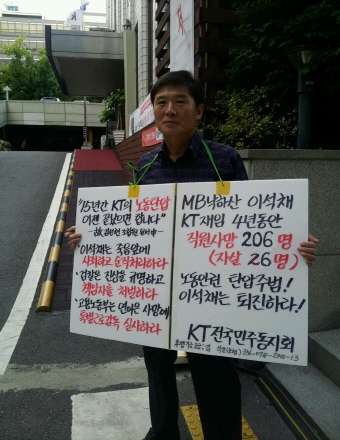 "15년간 KT의 노동탄압
이젠 끝났으면 합니다"
유서 中
이석채는 죽음앞에
사죄하고 순직처리하라
· 검찰은 진상을 규명하고
책임자를 처벌하라
· 고용노동부는 연이은 사망에
특별근로감독 실시하라
MB낙하산 이석채
KT 재임 4년동안
직원사망 206명
(자살 26명)
노동인권 탄압주범!
이석채는 퇴진하라!
KT 전국민주동지회